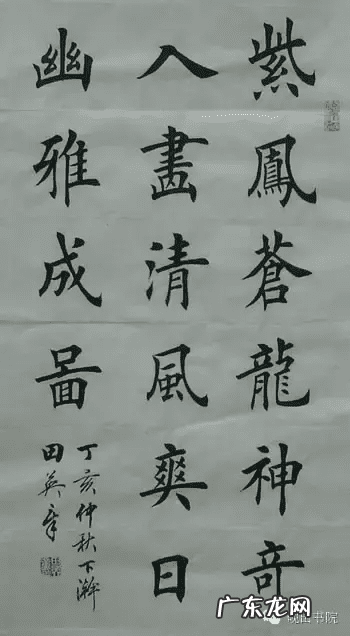 紫鳳蒼龍神奇
入畫清風爽日
幽雅成啚
丁亥仲秋下澣
田英章
广东龙网